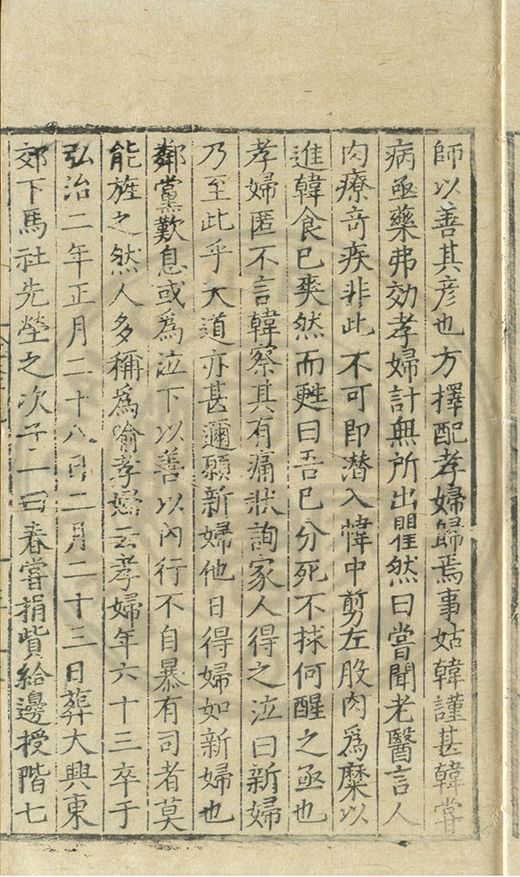 師以善其彦也方擇配孝婦歸焉事姑韓謹甚韓嘗
病亟藥弗効孝婦計無所出瞿然曰嘗聞老醫言人
肉療奇疾非此不可即潜入幃中剪左股肉爲糜以
進韓食已爽然而甦曰吾已分死不抹何醒之亟也
孝婦匿不言韓察其有痛狀詢家人得之泣曰新婦
乃至此乎天道亦甚邇願新婦他日得婦如新婦也
鄰黨歎息或爲泣下以善以內行不自暴有司者莫
能旌之然人多稱爲喻孝婦云孝婦年六十三卒于
弘治二年正月二十八日二月二十三日葬大興東
郊下馬社先塋之次子二曰春嘗捐貲給邊授階七